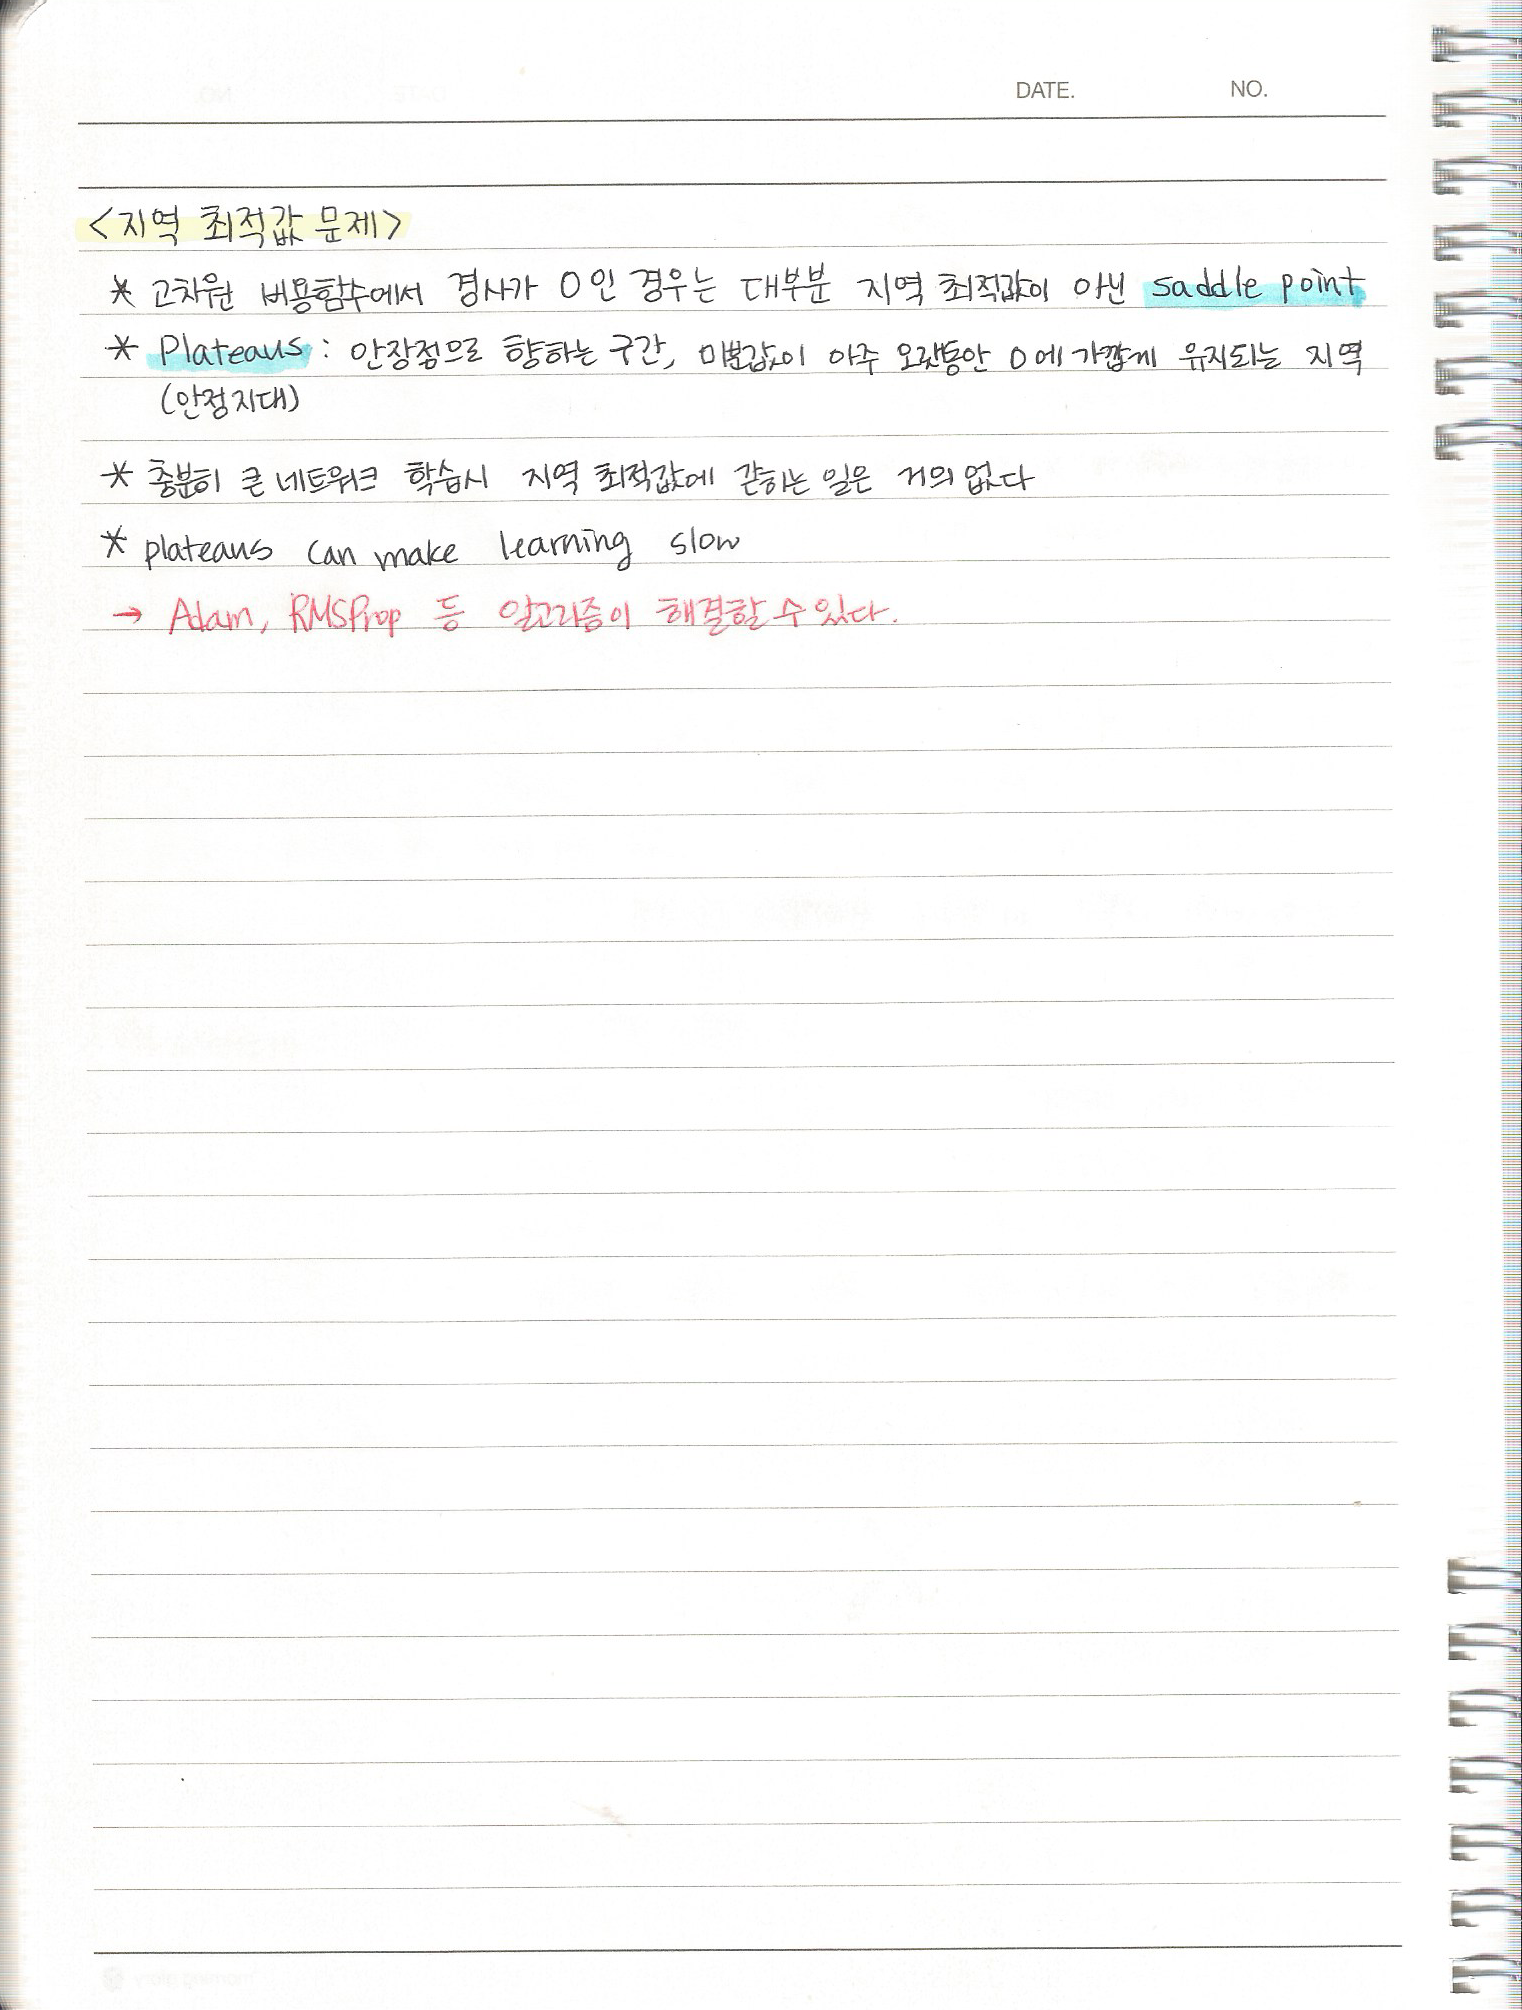 DATE. NO.
<지역 최적값 문제>
* 고차원 비용함수에서 경사가 0인 경우는 대부분 지역 최적값이 아닌 saddle point
* Plateaus : 안장점으로 향하는 구간, 미분값이 아주 오랫동안 0에 가깝게 유지되는 지역
(안정지대)
* 충분히 큰 네트워크 학습시 지역 최적값에 갇히는 일은 거의 없다
* plateaus can make learning slow
→ Adam, RMSProp 등 알고리즘이 해결할 수 있다.